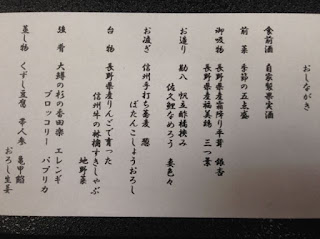 おしながき
食前酒 自家製果実酒
前菜 季節の五点盛
御吸物 長野県産霜降り平茸 銀杏
長野県産福美鶏 三つ葉
お造り 勘八 帆立酢橘挟み
佐久鯉なめろう 妻色々
お凌ぎ 信州手打ち蕎麦 葱
ぼたんこしょうおろし
台物 長野県産りんごで育った
信州牛の林檎すきしゃぶ
地野菜
強肴 大鱒の杉の香田楽 エレンギ
ブロッコリー パプリカ
蒸し物 くずし豆腐 帯人参 亀甲餡
おろし生姜